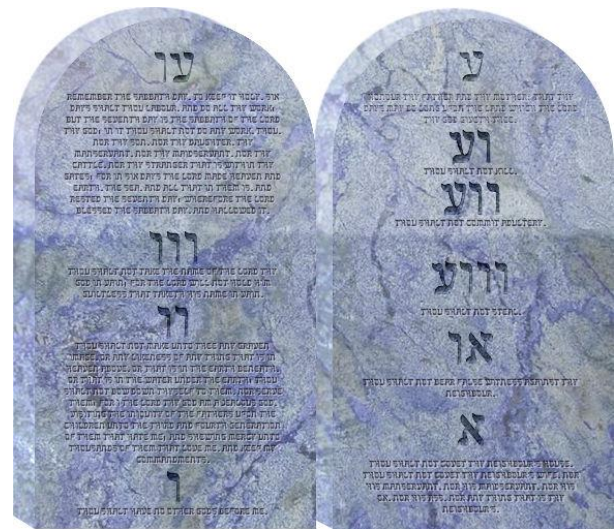 עו
REMEMBER THE SABBATH DAY, TO KEEP IT HOLY. SIX
DAYS SHALT THOU LABOUR, AND DO ALL THY WORK:
BUT THE SEVENTH DAY IS THE SABBATH OF THE LORD
THY GOD: IN IT THOU SHALT NOT DO ANY WORK, THOU,
NOR THY SON, NOR THY DAUGHTER, THY
MANSERVANT, NOR THY MAIDSERVANT, NOR THY
CATTLE, NOR THY STRANGER THAT IS WITHIN THY
GATES: FOR IN SIX DAYS THE LORD MADE HEAVEN AND
EARTH, THE SEA, AND ALL THAT IN THEM IS, AND
RESTED THE SEVENTH DAY: WHEREFORE THE LORD
BLESSED THE SABBATH DAY, AND HALLOWED IT.
ווו
THOU SHALT NOT TAKE THE NAME OF THE LORD THY
GOD IN VAIN; FOR THE LORD WILL NOT HOLD HIM
GUILTLESS THAT TAKETH HIS NAME IN VAIN.
וו
THOU SHALT NOT MAKE UNTO THEE ANY GRAVEN
IMAGE, OR ANY LIKENESS OF ANY THING THAT IS IN
HEAVEN ABOVE, OR THAT IS IN THE EARTH BENEATH,
OR THAT IS IN THE WATER UNDER THE EARTH: THOU
SHALT NOT BOW DOWN THYSELF TO THEM, NOR SERVE
THEM: FOR I THE LORD THY GOD AM A JEALOUS GOD,
VISITING THE INIQUITY OF THE FATHERS UPON THE
CHILDREN UNTO THE THIRD AND FOURTH GENERATION
OF THEM THAT HATE ME; AND SHEWING MERCY UNTO
THOUSANDS OF THEM THAT LOVE ME, AND KEEP MY
COMMANDMENTS.
ו
THOU SHALT HAVE NO OTHER GODS BEFORE ME.
ע
HONOUR THY FATHER AND THY MOTHER: THAT THY
DAYS MAY BE LONG UPON THE LAND WHICH THE LORD
THY GOD GIVETH THEE.
וע
THOU SHALT NOT KILL.
ווע
THOU SHALT NOT COMMIT ADULTERY.
וווע
THOU SHALT NOT STEAL.
או
THOU SHALT NOT BEAR FALSE WITNESS AGAINST THY
NEIGHBOUR.
א
THOU SHALT NOT COVET THY NEIGHBOUR'S HOUSE,
THOU SHALT NOT COVET THY NEIGHBOUR'S WIFE, NOR
HIS MANSERVANT, NOR HIS MAIDSERVANT, NOR HIS
OX, NOR HIS ASS, NOR ANY THING THAT IS THY
NEIGHBOUR'S.